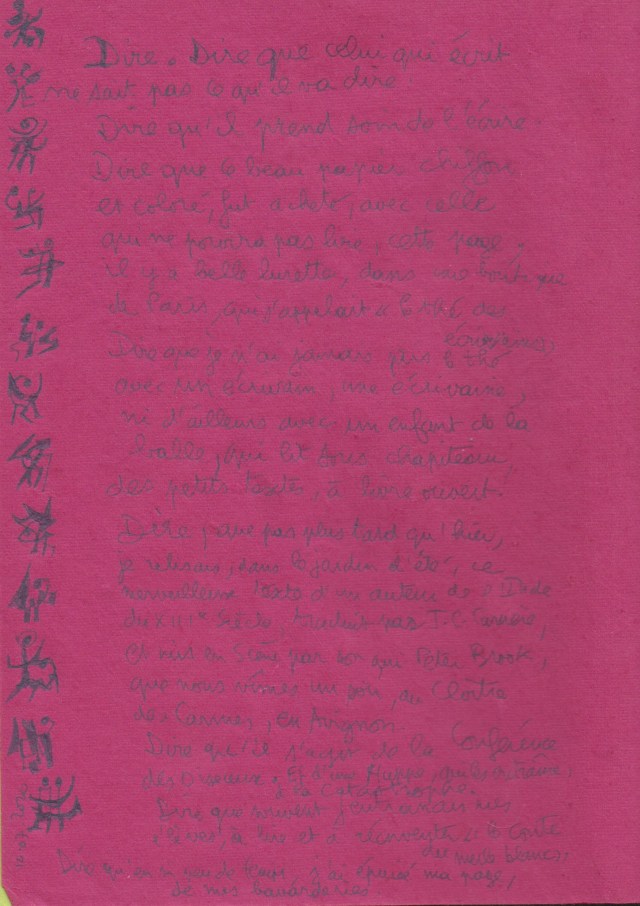 Dire. Dire que celui qui écrit
ne sait pas ce qu'il va dire.
Dire qu'il prend soin de l'écrire.
Dire que ce beau papier chiffon
et coloré, fut acheté, avec celle
qui ne pourra pas lire, cette page,
il y a belle lurette, dans une boutique
de Paris, qui s'appelait « Le thé des
écrivains »
Dire que je n'ai jamais pris le thé
avec un écrivain, une écrivaine,
ni d'ailleurs avec un enfant de la
balle, qui lit sous chapiteau,
des petits textes, à livre ouvert.
Dire, que pas plus tard qu'hier,
je relisais, dans le jardin d'été, ce
merveilleux texte d'un auteur de
du XIIIe siècle, traduit par J-C Carrière,
et mis en scène par Peter Brook,
que nous vîmes un soir, au Cloître
des Carmes, en Avignon.
Dire qu'il s'agit de la Conférence
des Oiseaux, Et d'une Huppe, qui les
à la catastrophe.
Dire que souvent mes
élèves, à lire et à le conte
Dire qu'en si peu de temps, j'ai épuisé ma page,
de mes bavardages.